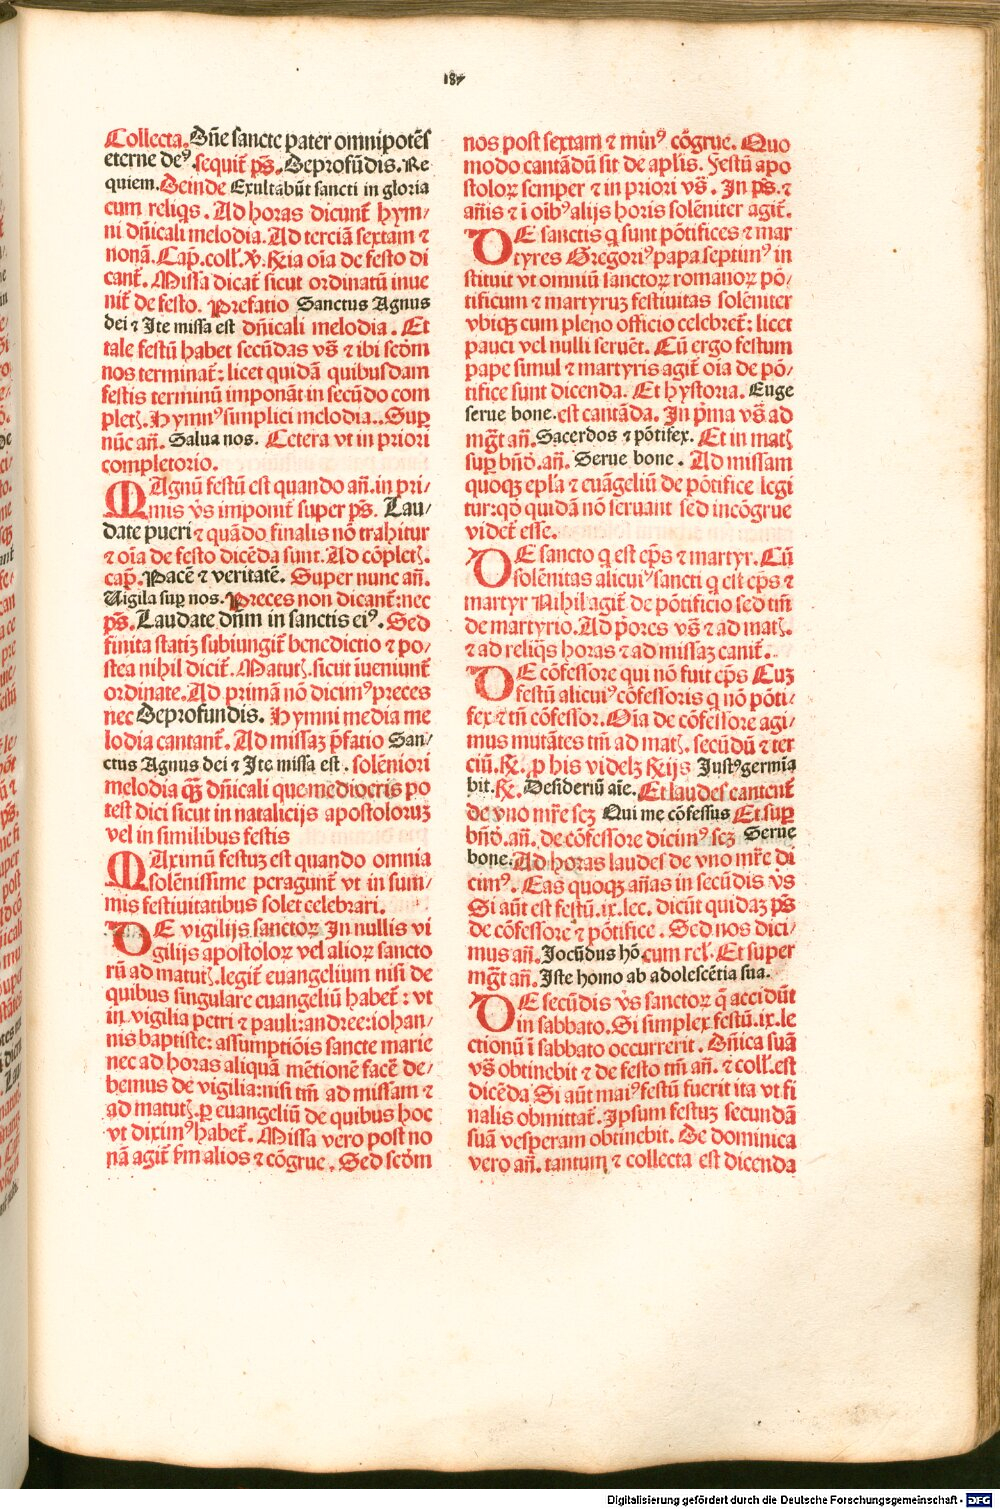 187
Collecta. Dñe sancte pater omnipotẽs
eterne deꝰ. sequit᷑ ps̃. Deprofũdis. Re
quiem. Deinde Exultabũt sancti in gloria
cum reliq̃s. Ad horas dicunt᷑ hym/
ni dñicali melodia. Ad terciã sextam ⁊
nonã. Cap̃. coll᷑. ℣. ℞ia oĩa de festo di
cant᷑. Missa dicat᷑ sicut ordinatũ inue
nit᷑ de festo. Prefatio Sanctus Agnus
dei ⁊ Ite missa est dñicali melodia. Et
tale festũ habet secũdas vs̃ ⁊ ibi scd̃m
nos terminat᷑: licet quidã quibusdam
festis terminũ imponãt in secũdo com
pletꝭ. Hymnꝰ simplici melodia.. Suꝑ
nũc añ. Salua nos. Cetera vt in priori
completorio.
MAgnũ festũ est quando añ. in pri/
mis vs̃ imponit᷑ super ps̃. Lau/
date pueri ⁊ quãdo finalis nõ trahitur
⁊ oĩa de festo dicẽda sunt. Ad cõpletꝭ.
cap̃. Pacẽ ⁊ veritatẽ. Super nunc añ.
Uigila suꝑ nos. Preces non dicant᷑: nec
ps̃. Laudate dñm in sanctis eiꝰ. Sed
finita statiꝫ subiungit᷑ benedictio ⁊ po/
stea nihil dicit᷑. Matutꝭ. sicut ĩueniunt᷑
ordinate. Ad primã nõ dicimꝰ preces
nec Deprofundis. Hymni media me
lodia cantant᷑. Ad missaꝫ p̃fatio San/
ctus Agnus dei ⁊ Ite missa est. solẽniori
melodia qꝫ̃ dñicali que mediocris po
test dici sicut in natalicijs apostoloruꝫ
vel in similibus festis
MAximũ festuꝫ est quando omnia
solẽnissime peragunt᷑ vt in sum/
mis festiuitatibus solet celebrari.
DE vigilijs sanctoꝝ In nullis vi
gilijs apostoloꝝ vel alioꝝ sancto
rũ ad matutꝭ. legit᷑ euangelium nisi de
quibus singulare euangeliũ habet᷑: vt
in vigilia petri ⁊ pauli: andree: iohan/
nis baptiste: assumptiõis sancte marie
nec ad horas aliquã mẽtionẽ facẽ de/
bemus de vigilia: nisi tm̃ ad missam ⁊
ad matutꝭ. ꝑ euangeliũ de quibus hoc
vt diximꝰ habet᷑. Missa vero post no
nã agit᷑ ẜm alios ⁊ cõgrue. Sed scd̃m
nos post sextam ⁊ minꝰ cõgrue. Quo
modo cantãdũ sit de aplis. Festũ apo
stoloꝝ semper ⁊ in priori vs̃. In ps̃. ⁊
añis ⁊ ĩ oĩbꝰ alijs horis solẽniter agit᷑.
DE sanctis q̃ sunt põtifices ⁊ mar
tyres Gregoriꝰ papa septimꝰ in
stituit vt omniũ sanctoꝝ romanoꝝ põ/
tificum ⁊ martyruꝫ festiuitas solẽniter
vbiqꝫ cum pleno officio celebret᷑: licet
pauci vel nulli seruẽt. Cũ ergo festum
pape simul ⁊ martyris agit᷑ oĩa de põ/
tifice sunt dicenda. Et hystoria. Euge
serue bone. est cantãda. In p̃ma vs̃ ad
mg̃t añ. Sacerdos ⁊ põtifex. Et in matꝭ
suꝑ bñd̃. añ. Serue bone. Ad missam
quoqꝫ epl̃a ⁊ euãgeliũ de põtifice legi
tur: qd̃ quidã nõ seruant sed incõgrue
videt᷑ esse.
DE sancto q̃ est ep̃s ⁊ martyr. Cũ
solẽnitas alicuiꝰ sancti q̃ est ep̃s ⁊
martyr Nihil agit᷑ de põtificio sed tm̃
de martyrio. Ad p̃ores vs̃ ⁊ ad matꝭ.
⁊ ad reliq̃s horas ⁊ ad missaꝫ canit᷑.
DE cõfessore qui nõ fuit ep̃s Cuꝫ
festũ alicuiꝰ cõfessoris q̃ nõ põti/
fex ⁊ tm̃ cõfessor. Oĩa de cõfessore agi/
mus mutãtes tm̃ ad matꝭ. secũdũ ⁊ ter
ciũ. ℞. ꝓ his videlꝫ ℞ijs Justꝰ germĩa
bit. ℞. Desideriũ aĩe. Et laudes cantent᷑
de vno mr̃e scꝫ Qui me cõfessus Et suꝑ
bñd̃. añ. de cõfessore dicimꝰ scꝫ Serue
bone. Ad horas laudes de vno mr̃e di
cimꝰ. Eas quoqꝫ añas in secũdis vs̃
Si aũt est festũ. ix. lec. dicũt quidaꝫ ps̃
de cõfessore ⁊ põtifice. Sed nos dici/
mus añ. Jocũdus hõ cum rel᷑. Et super
mg̃t añ. Iste homo ab adolescẽtia sua.
DE secũdis vs̃ sanctoꝝ q̃ accidũt
in sabbato. Si simplex festũ. ix. le
ctionũ ĩ sabbato occurrerit. Dñica suã
vs̃ obtinebit ⁊ de festo tm̃ añ. ⁊ coll᷑. est
dicẽda Si aũt maiꝰ festũ fuerit ita vt fi
nalis obmittat᷑. Ipsum festuꝫ secundã
suã vesperam obtinebit. De dominica
vero añ. tantum ⁊ collecta est dicenda
Digitalisierung gefördert durch die Deutsche Forschungsgemeinschaft - DFG